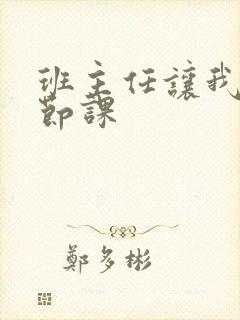 班主任讓我
節課
鄭多彬